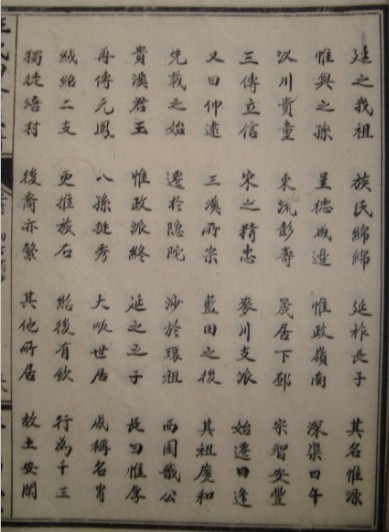 延之我祖 族氏綿綿 延祚此子 其名惟源
惟興之孫 呈德城邊 惟政嶺南 深渠曰午
汊川賁臺 東流彭壽 晟居下邳 宗智安豐
三傳立信 宋之精忠 麥川支派 始遷曰逢
又曰仲遠 三溪所宗 藍田之後 其祖廣和
先載之始 遷於隱陀 渺於環祖 西園戩公
貴溪君王 惟政派終 延之之子 長曰惟厚
再傳元鳳 八孫挺秀 大畈世居 咸稱名胄
緘紿二支 更推族右 紿後有欽 行為千三
獨徙培村 後裔亦繁 其他所居 故土安閒